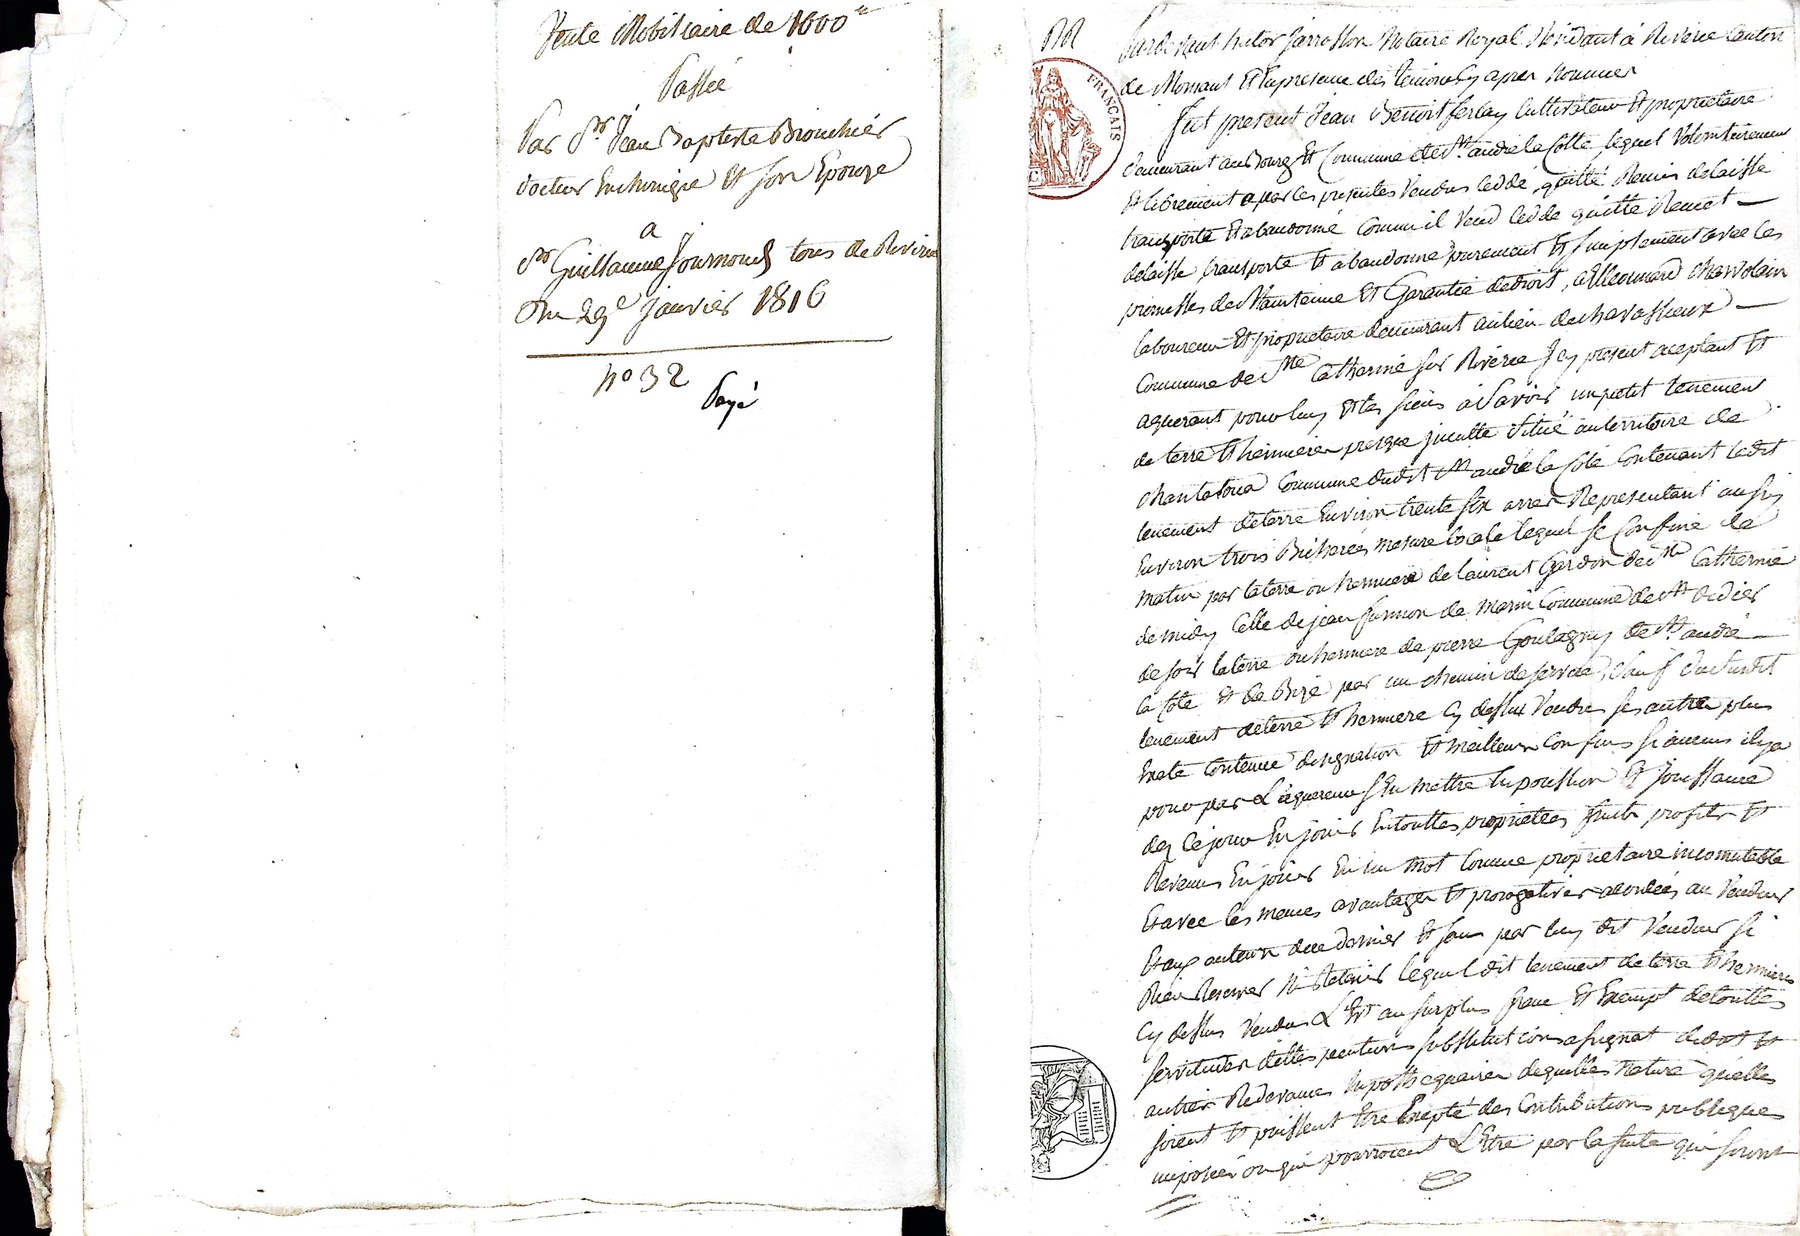 Vente Mobiliaire de 1600
Passée
Par Sr Jean Baptiste Brouchier
docteur En chirurgie Et son Epouze
a
Sr Guillaume Journoud tous de Riverie
Du 29e janvier 1816
no 32
Payé
FRANÇAIS
Pardevant hector jarrosson Notaire Royal Résidant à Riverie canton
de Mornant Et En presence des temoins cy apres Nommés
fut present Jean Benoit ferlay Cultivateur Et proprietaire
demeurant au Bourg Et Commune de St andré la Cotte, lequel Volontairement
Et librement a par ces presentes Vendus ceddé quitté Remis delaissé
transporté Et abandonné Comme il Vend cedde quitte Remet
delaisse transporte Et abandonne purement Et simplement avec les
promesses de Maintenue Et Garantie de droit, a
laboureur Et proprietaire demeurant au lieu de chavassieux
Commune de Ste Catherine sur Riverie Icy present aceptant Et
aquerant pour luy Et les siens à Savoir un petit tenement
de terre Et hermiere presque inculte situé au territoire de
Commune dudit St andré la Cote Contenant ledit
tenement de terre Environ trente six ares Representant aussy
Environ trois Bicherées mesure locale lequel se Confine de
matin par la terre ou hermiere de laurent Gardon de Ste Catherine
de midy Celle de jean de Commune de St didier
de soir la terre ou hermiere de pierre de St andré
la Cote Et de Bize par un chemin de service, sauf dudit
tenement de terre Et hermiere Cy dessus Vendu ses autres plus
Exate Contenue designation Et meilleurs Confins si aucuns il y a
pour par L'aquereur s'En mettre En possession Et jouissance
dez Ce jour En jouir En touttes proprietées fruits profits Et
Revenus En jouir En un mot Comme proprietaire incomutable
Et avec les memes avantages Et prerogatives au Vendeur
Et aux auteurs de ce dernier Et sans par luy dit Vendeur si
Rien Reserver Ni Retenir lequel dit tenement de terre Et hermiere
Cy dessus Vendu Est au surplus franc Et Exempt de touttes
servitudes substitutions dot Et
autres Redevances hypothequaires de quelles Nature quelles
soient Et puissent Etre Excepté des Contributions publiques
imposées ou qui pourroient L'Etre par la suite qui seront